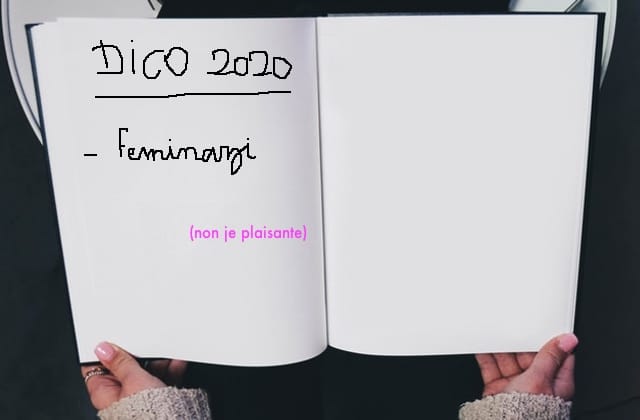 DiCO 2020
- Feminazi
(non je plaisante)